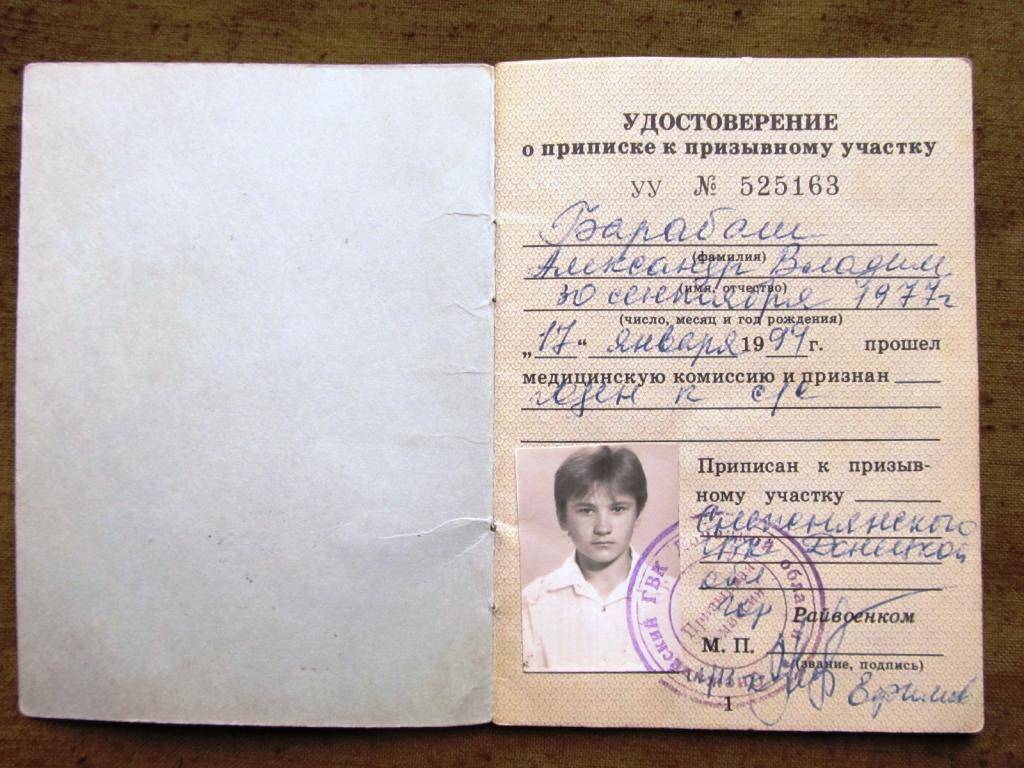 УДОСТОВЕРЕНИЕ
о приписке к призывному участку
УУ № 525163
Барабаш
(фамилия)
Александр Владим
(имя, отчество)
30 сентября 1977г
(число, месяц и год рождения)
„17“ января 1994г. прошел
медицинскую комиссию и признан
годен к с/с
Приписан к призыв-
ному участку
Снежнянского
ГВК Донецкой
обл
Гор Райвоенком
М. П.
(звание, подпись)
п/п-к Ефимов
1